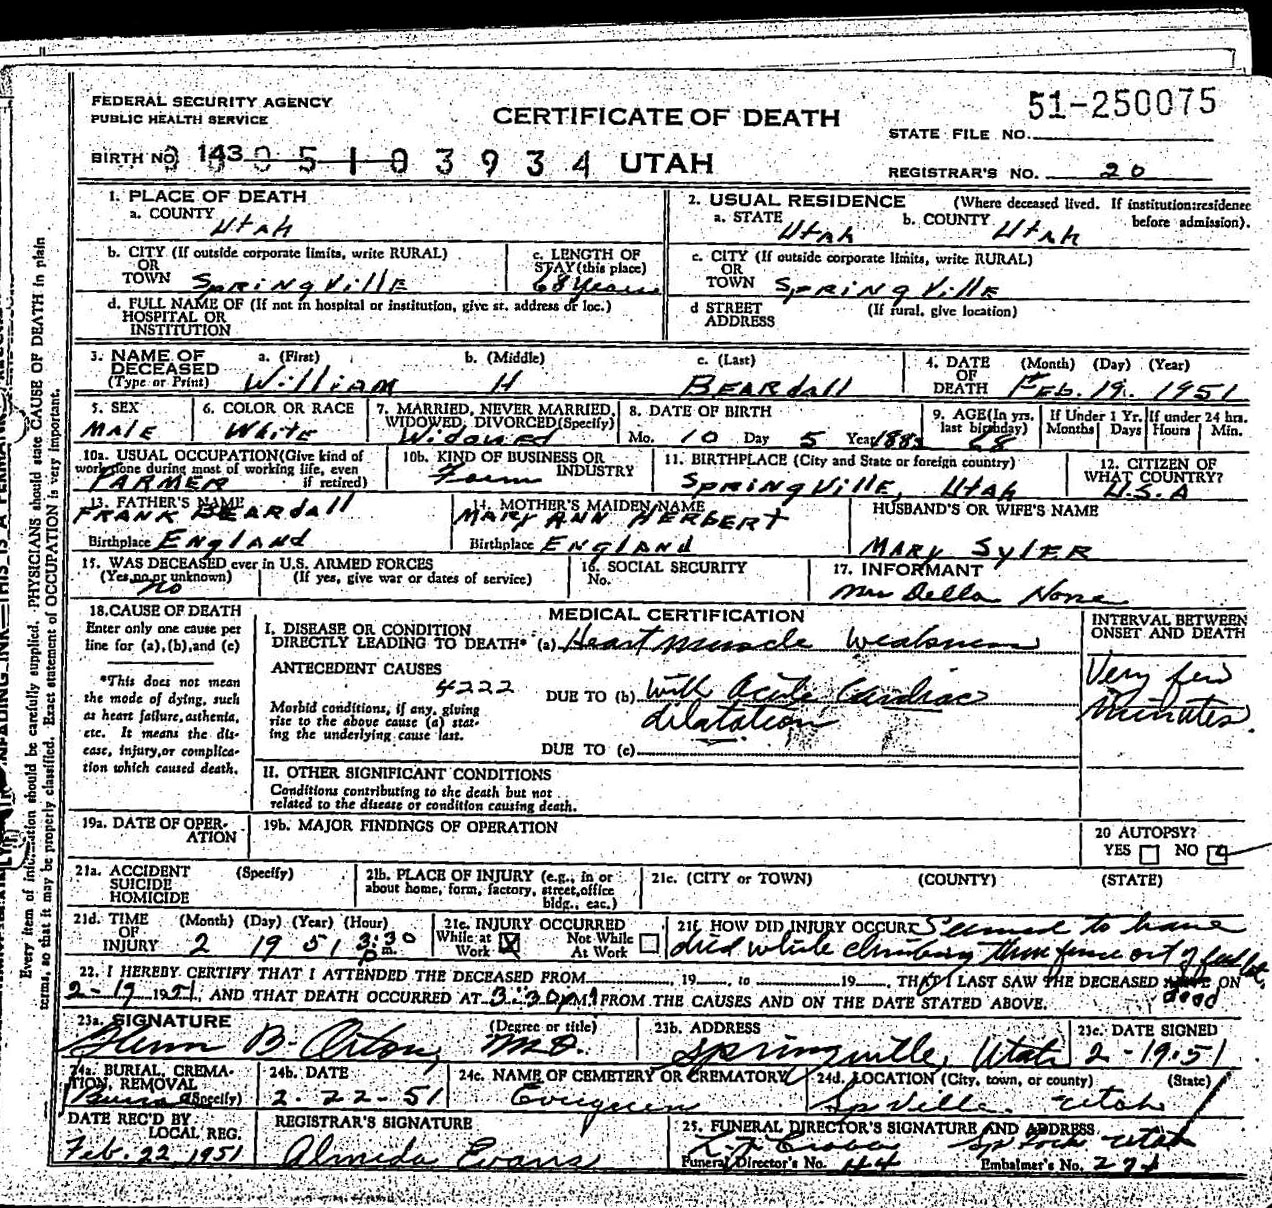 FEDERAL SECURITY AGENCY
PUBLIC HEALTH SERVICE
CERTIFICATE OF DEATH
51-250075
STATE FILE NO.
BIRTH NO. 143 0 5 1 0 3 9 3 4 UTAH
REGISTRAR'S NO. 20
1. PLACE OF DEATH
a. COUNTY Utah
2. USUAL RESIDENCE (Where deceased lived. If institution:residence before admission).
a. STATE Utah b. COUNTY Utah
b. CITY (If outside corporate limits, write RURAL)
OR
TOWN SpRiNgVille
c. LENGTH OF
STAY(this place)
68 Years
c. CITY (If outside corporate limits, write RURAL)
OR
TOWN SpRiNgVille
d. FULL NAME OF (If not in hospital or institution, give st. address or loc.)
HOSPITAL OR
INSTITUTION
d STREET (If rural, give location)
ADDRESS
3. NAME OF DECEASED (Type or Print)
a. (First) William
b. (Middle) H
c. (Last) BEARdall
4. DATE OF DEATH (Month) (Day) (Year)
FEb. 19. 1951
5. SEX
MAlE
6. COLOR OR RACE
White
7. MARRIED, NEVER MARRIED,
WIDOWED, DIVORCED(Specify)
Widowed
8. DATE OF BIRTH
Mo. 10 Day 5 Year
9. AGE(In yrs. last birthday)
68
If Under 1 Yr. Months Days
If under 24 hrs. Hours Min.
10a. USUAL OCCUPATION(Give kind of
work done during most of working life, even
if retired)
FARMER
10b. KIND OF BUSINESS OR
INDUSTRY
Farm
11. BIRTHPLACE (City and State or foreign country)
SpRiNgVille, Utah
12. CITIZEN OF
WHAT COUNTRY?
U.S.A
13. FATHER'S NAME
FRANK BEARdall
Birthplace ENglANd
14. MOTHER'S MAIDEN NAME
MARY ANN HERbERT
Birthplace ENglANd
HUSBAND'S OR WIFE'S NAME
MARY SylER
15. WAS DECEASED ever in U.S. ARMED FORCES
(Yes, no or unknown) (If yes, give war or dates of service)
no
16. SOCIAL SECURITY
No.
17. INFORMANT
Mrs Della
18. CAUSE OF DEATH
Enter only one cause per
line for (a),(b),and (c)
*This does not mean
the mode of dying, such
as heart failure, asthenia,
etc. It means the dis-
ease, injury, or complica-
tion which caused death.
MEDICAL CERTIFICATION
I. DISEASE OR CONDITION
DIRECTLY LEADING TO DEATH* (a) Heart muscle weakness
ANTECEDENT CAUSES
4222
Morbid conditions, if any, giving
rise to the above cause (a) stat-
ing the underlying cause last.
DUE TO (b) With Acute Cardiac
dilatation
DUE TO (c)
INTERVAL BETWEEN
ONSET AND DEATH
Very few
Minutes.
II. OTHER SIGNIFICANT CONDITIONS
Conditions contributing to the death but not
related to the disease or condition causing death.
19a. DATE OF OPER-
ATION
19b. MAJOR FINDINGS OF OPERATION
20 AUTOPSY?
YES NO
21a. ACCIDENT (Specify)
SUICIDE
HOMICIDE
21b. PLACE OF INJURY (e.g., in or
about home, form, factory, street,office
bldg., eac.)
21c. (CITY or TOWN) (COUNTY) (STATE)
21d. TIME OF INJURY (Month) (Day) (Year) (Hour)
2 19 51 3:30 p m.
21e. INJURY OCCURRED
While at Work X Not While At Work
21f. HOW DID INJURY OCCUR? Seemed to have
died while climbing thru fence out of feed lot
22. I HEREBY CERTIFY THAT I ATTENDED THE DECEASED FROM 19 to 19 THAT I LAST SAW THE DECEASED ALIVE ON dead
2-19 1951, AND THAT DEATH OCCURRED AT 3:30 p M. FROM THE CAUSES AND ON THE DATE STATED ABOVE.
23a. SIGNATURE (Degree or title)
Glenn B. Orton, M.D.
23b. ADDRESS
Springville, Utah
23c. DATE SIGNED
2-19-51
24a. BURIAL, CREMA-
TION, REMOVAL
(Specify)
Burial
24b. DATE
2-22-51
24c. NAME OF CEMETERY OR CREMATORY
Evergreen
24d. LOCATION (City, town, or county) (State)
SpVille. Utah
DATE REC'D BY
LOCAL REG.
Feb. 22, 1951
REGISTRAR'S SIGNATURE
Almeda Evans
25. FUNERAL DIRECTOR'S SIGNATURE AND ADDRESS.
Utah
Funeral Director's No. 44 Embalmer's No.
Every item of information should be carefully supplied. PHYSICIANS should state CAUSE OF DEATH in plain
terms, so that it may be properly classified. Exact statement of OCCUPATION is very important.